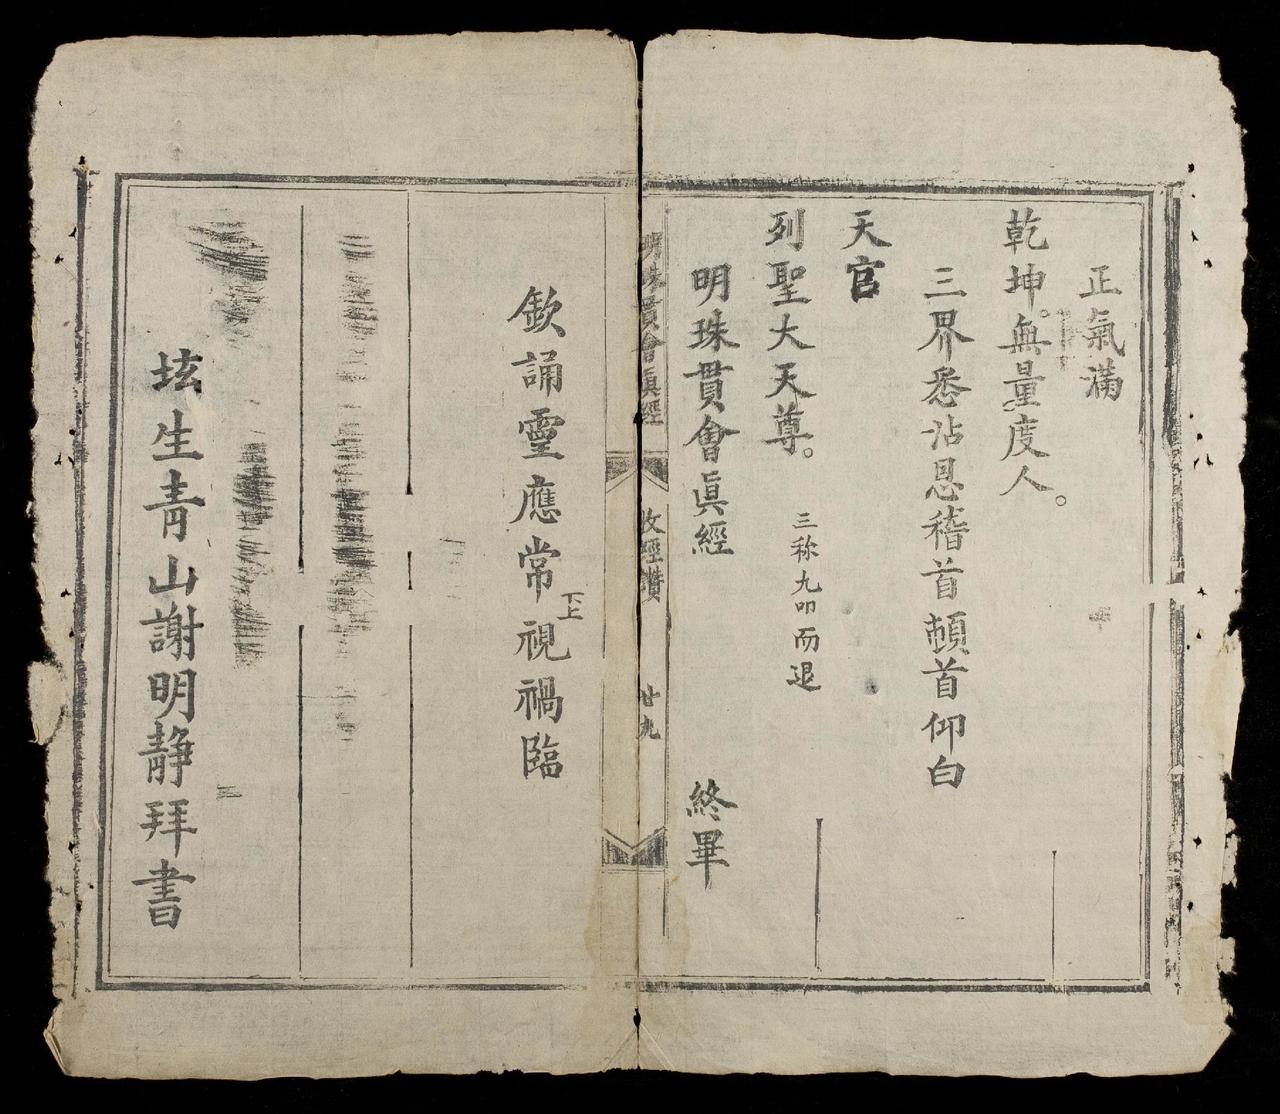 正氣滿
乾坤。無量度人。
三界悉沾恩稽首頓首仰白
天官
列聖大天尊。三称九叩而退
明珠貫會眞經 終畢
明珠貫會眞經 收經讚 廿九
欽誦靈應常視禍臨 下上
生青山謝明靜拜書